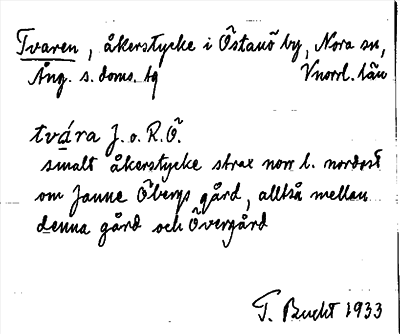 Tvaren, åkerstycke i Östanö by, Nora sn,
Ång. s. doms. tg Vnorrl. län
tvára J. o. R. Ö.
smalt åkerstycke strax norr l. nordost
om Janne Öbergs gård, alltså mellan
denna gård och Övergård
T. Bucht 1933